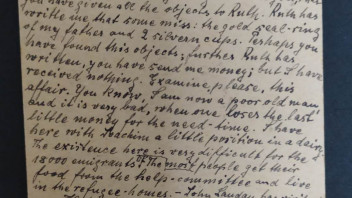 you have given all the objects to Ruth. Ruth has
writte me that some miss: the gold seal-ring
of my father and 2 silvern cups. Perhaps you
have found this objects; further Ruth has
written, you have send me money; but I have
received nothing. Examine, please, this
affair. You know, I am now a poor old man
and it is very bad, when one loses the last
little money for the need-time. I have
here with Joachim a little position in a dairy.
The existence here is very difficult for the
18000 emigrants. The most people get their
food from the help-committee and live
in the refugee-homes. - John Landau